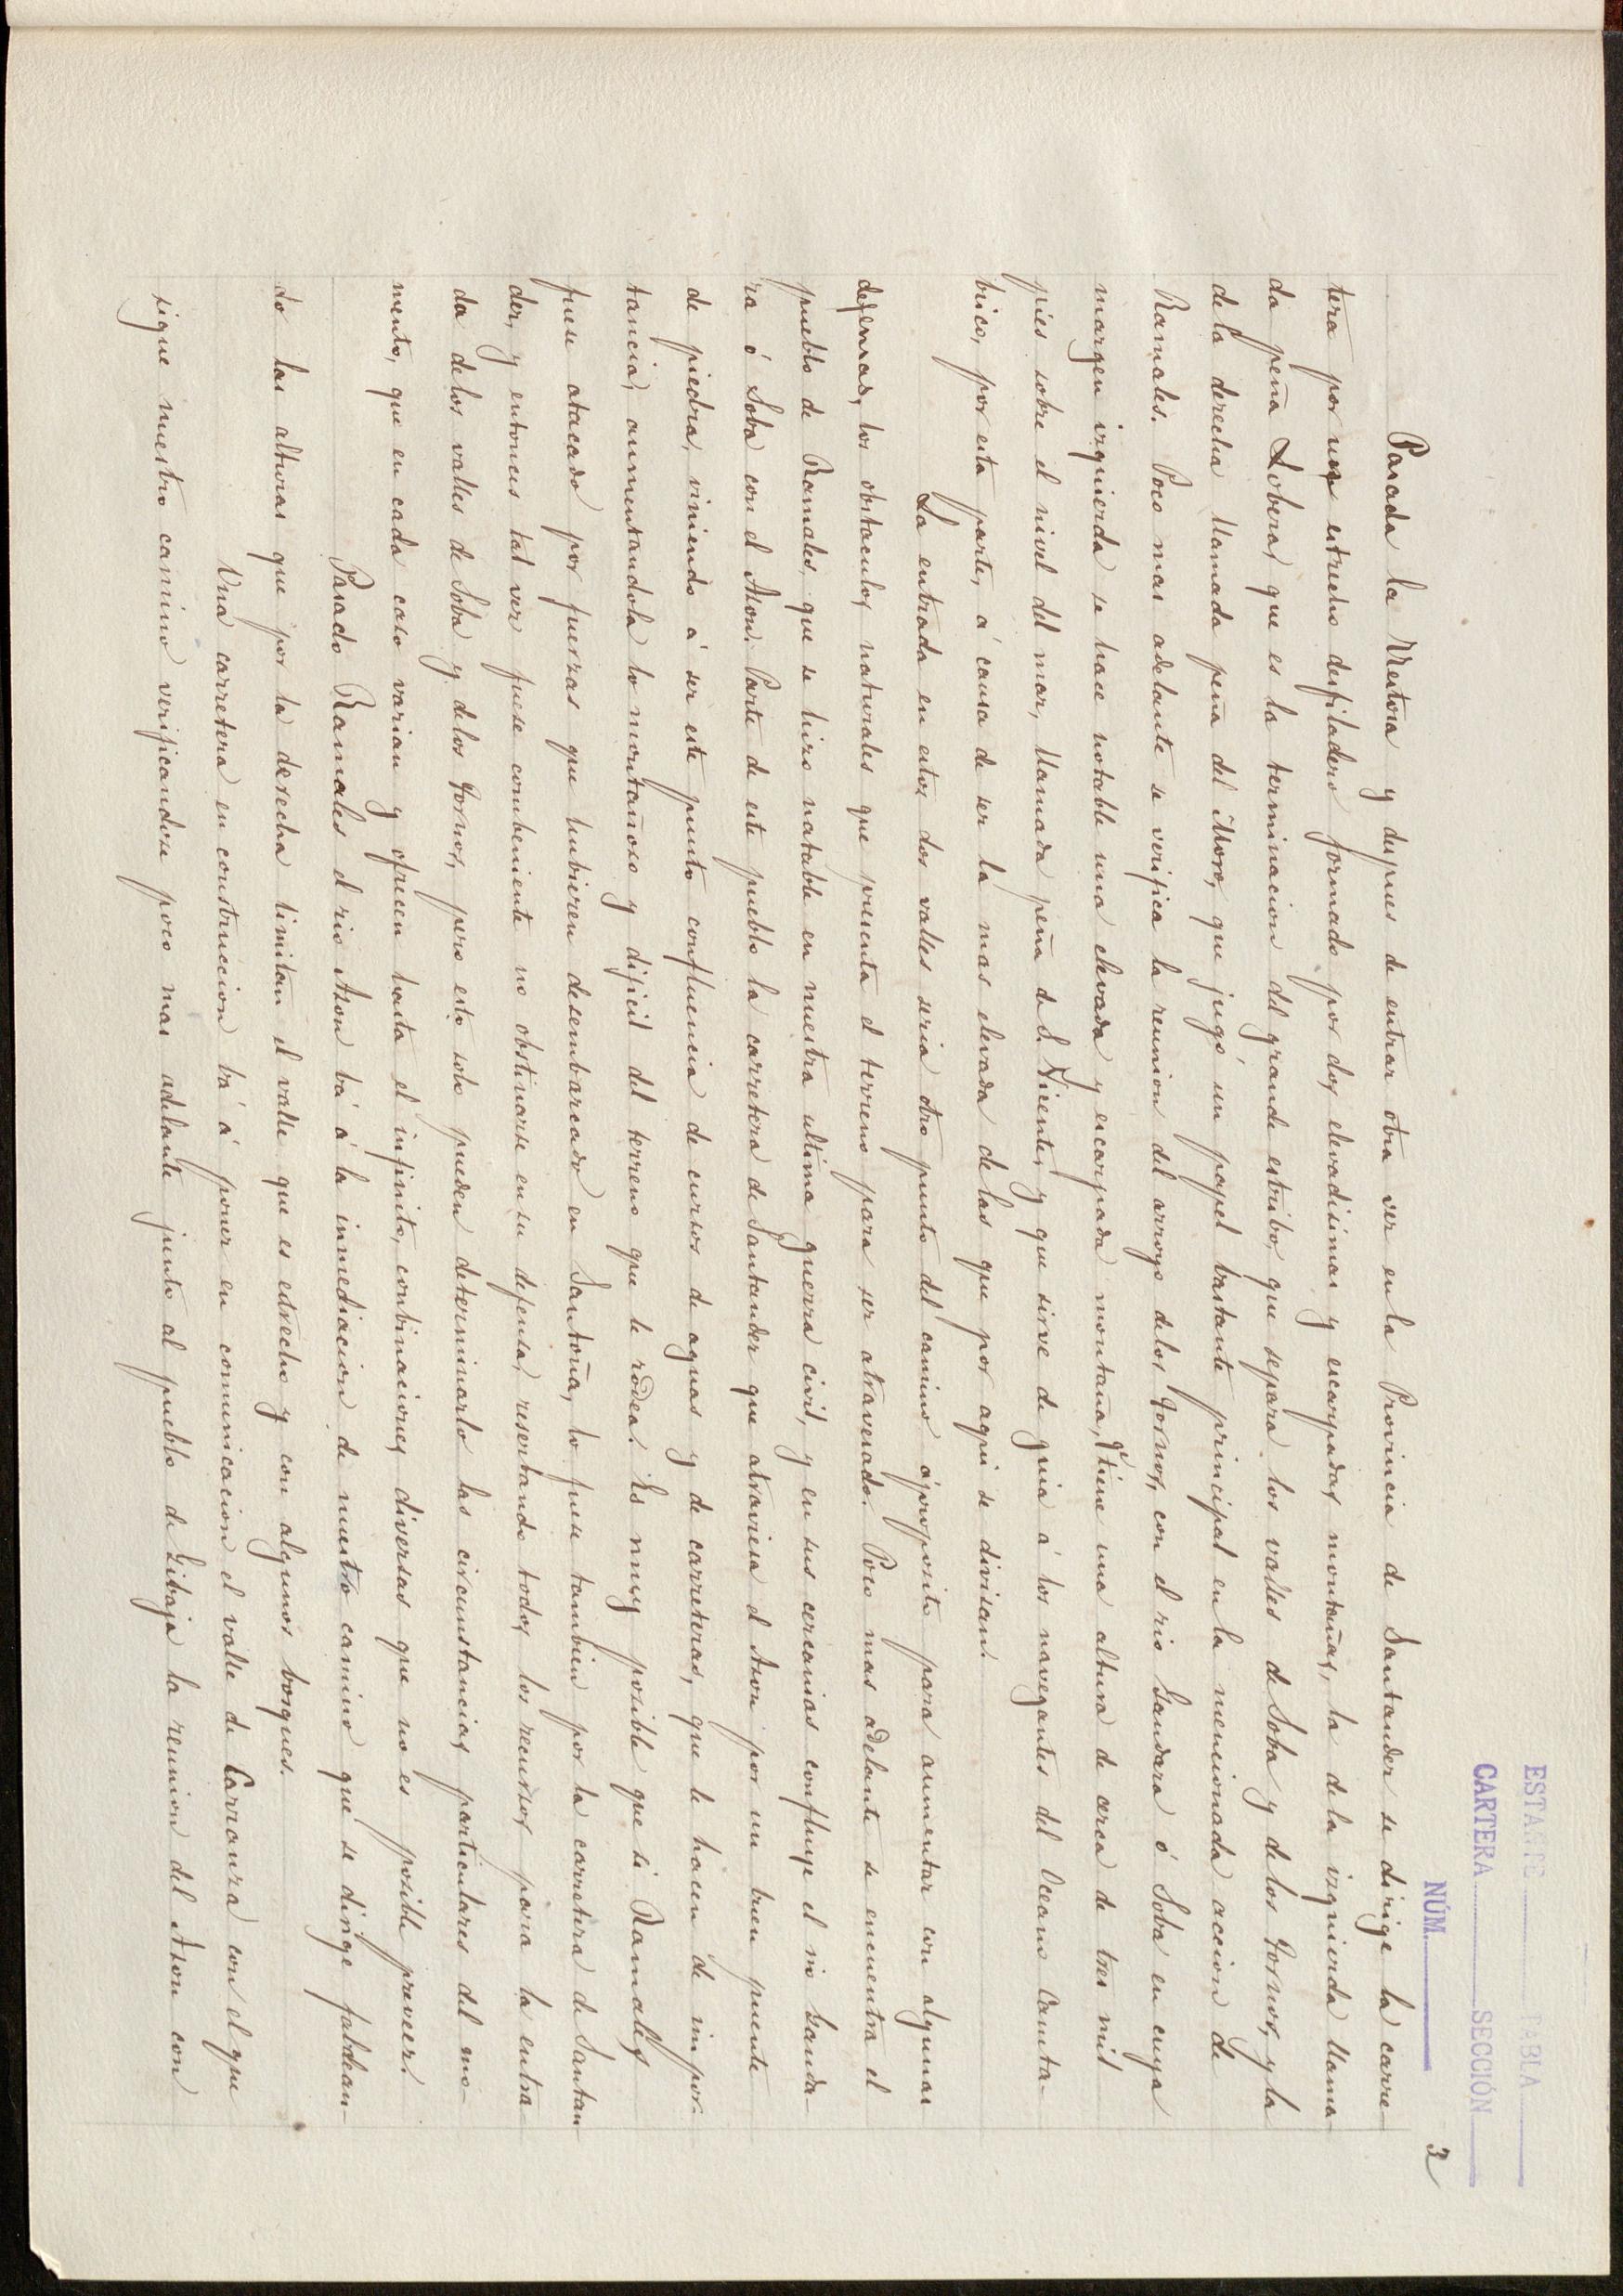 ESTANTE TABLA
CARTERA SECCIÓN
NÚM.
3
Pasada la Nestora y despues de entrar otra vez en la Provincia de Santander se dirige la carre-
tera por un estrecho desfiladero formado por dos elevadisimas y escarpadas montañas, la de la izquierda llama
da peña Lobera, que es la terminacion del grande estribo, que separa los valles de Soba y de los Tornos, y la
de la derecha llamada peña del Moro, que jugó un papel bastante principal en la mencionada accion de
Ramales. Poco mas adelante se verifica la reunion del arroyo de los Tornos, con el rio Gandara ó Soba en cuya
margen izquierda se hace notable una elevada y escarpada montaña, qe. tiene una altura de cerca de tres mil
pies sobre el nivel del mar, llamada peña de S. Vicente, y que sirve de guia á los navegantes del Oceano Canta-
brico, por esta parte, á causa de ser la mas elevada de las que por aqui se divisan.
La entrada en estos dos valles seria otro punto del camino áproposito para aumentar con algunas
defensas, los obstaculos naturales que presenta el terreno para ser atravesado. Poco mas adelante se encuentra el
pueblo de Ramales, que se hizo notable en nuestra ultima guerra civil, y en sus cercanias confluye el rio Ganda-
ra ó Soba con el Ason. Parte de este pueblo la carretera de Santander que atraviesa el Ason por un buen puente
de piedra, viniendo á ser este punto confluencia de cursos de aguas y de carreteras, que le hacen de impor-
tancia, aumentandola lo montañoso y dificil del terreno que le rodea. Es muy posible que si Ramales
fuese atacado por fuerzas que hubieren desembarcado en Santoña, lo fuese tambien por la carretera de Santan
der, y entonces tal vez fuese combeniente no obstinarse en su defensa, reserbando todos los recursos para la entra
da de los valles de Soba y de los Tornos, pero esto solo pueden determinarlo las circunstancias particulares del mo-
mento, que en cada caso varian y ofrecen hasta el infinito, combinaciones diversas que no es posible preveer.
Pasado Ramales el rio Ason bá á la inmediacion de nuestro camino que se dirige faldean-
do las alturas que por la derecha limitan el valle que es estrecho y con algunos bosques.
Una carretera en construccion bá á poner en comunicacion el valle de Carranza con el que
sigue nuestro camino verificandose poco mas adelante junto al pueblo de Gibaja la reunion del Ason con